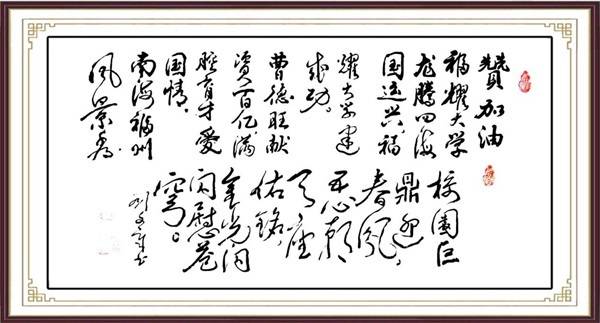 贊加油
福耀大学
龙腾四海
国运兴,福
耀大学建
成功。
曹德旺献
资百亿,满
腔育才爱
国情,
南海福州
风景秀
校园巨
鼎迎
春风,
座
佑铭,
金光闪
闪慰苍
穹。
书